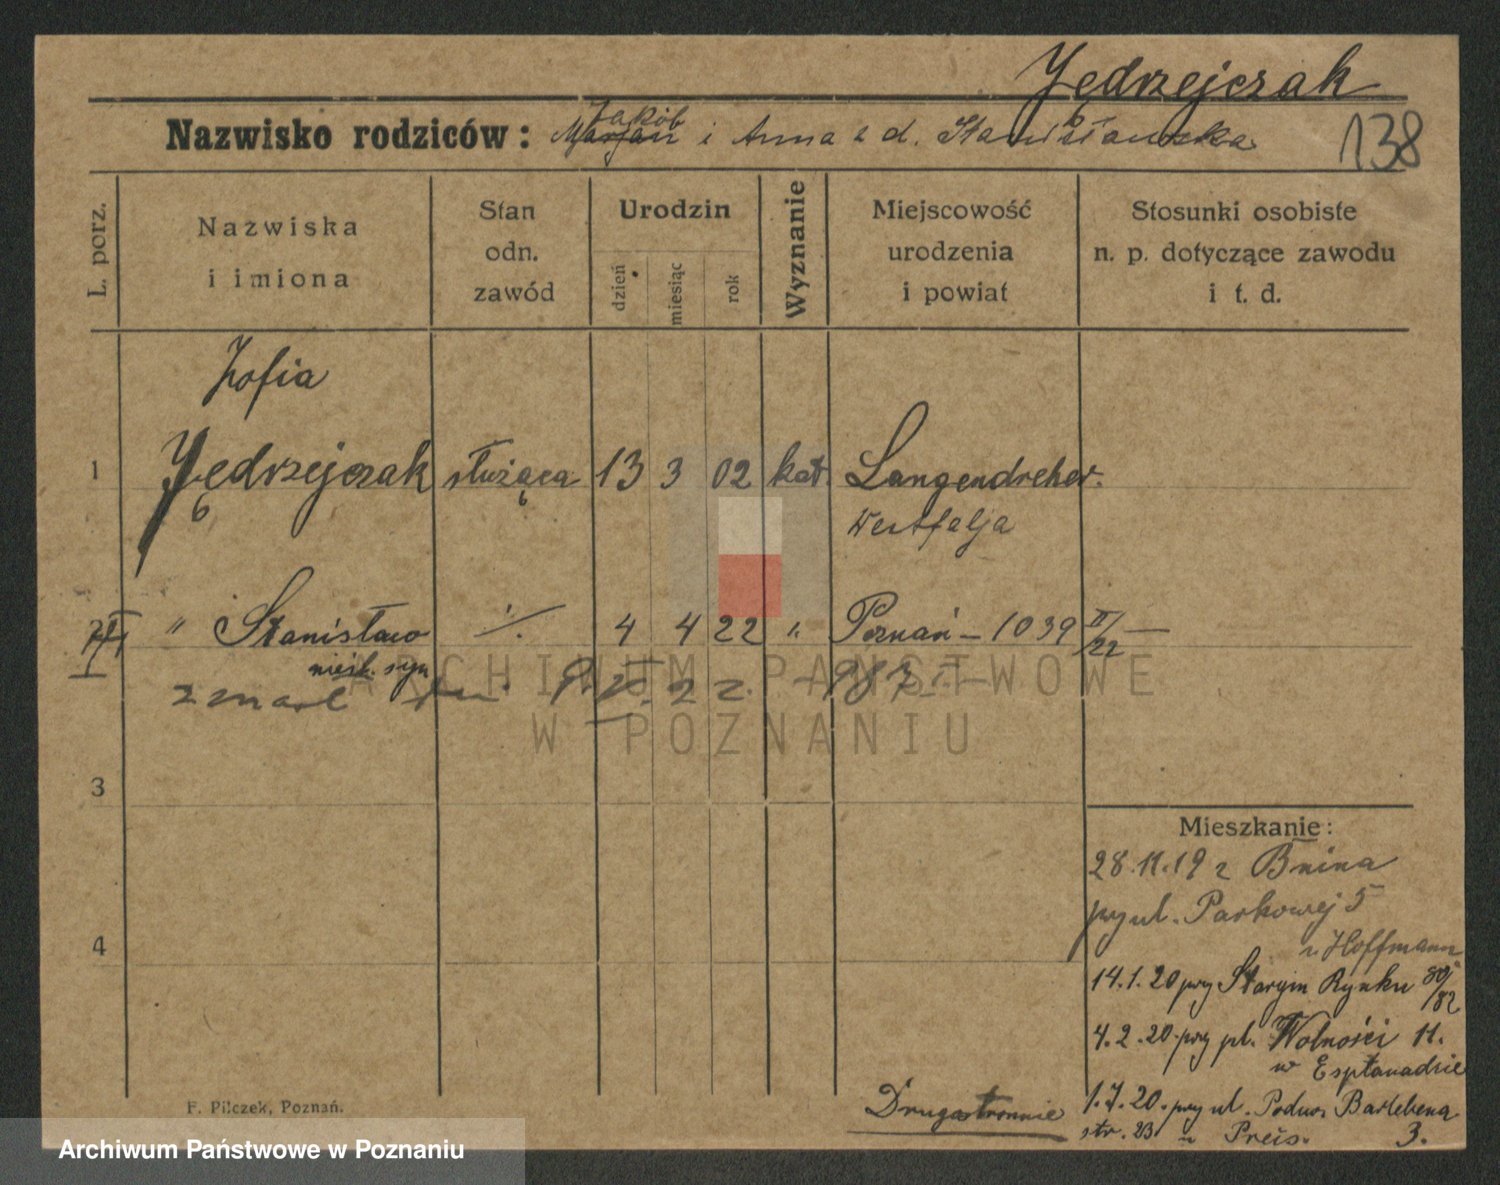 Jędrzejczak
Nazwisko rodziców: Marjan Jakób i Anna z d. Stanisławska
138
L. porz.
Nazwiska
i imiona
Stan
odn.
zawód
Urodzin
dzień
miesiąc
rok
Wyznanie
Miejscowość
urodzenia
i powiat
Stosunki osobiste
n. p. dotyczące zawodu
i t. d.
Zofia
1 Jędrzejczak służąca 13 3 02 kat. Langendreher.
Westfalja
" Stanisław ·/. 4 4 22 " Poznań – 1039 II/22
nieśl. syn
zmarł 9. 22.
3
4
Mieszkanie:
28.11.19 z Bnina
przy ul. Parkowej 5
u Hoffmann
14.1.20 przy Starym Rynku 80/82
4.2.20 przy pl. Wolności 11.
w Esplanadzie
1.7.20. przy ul. Podwor. Bartebena
str. 23 u Preis. 3.
Drugostronnie
F. Pilczek, Poznań.
ARCHIWUM PAŃSTWOWE
W POZNANIU
Archiwum Państwowe w Poznaniu